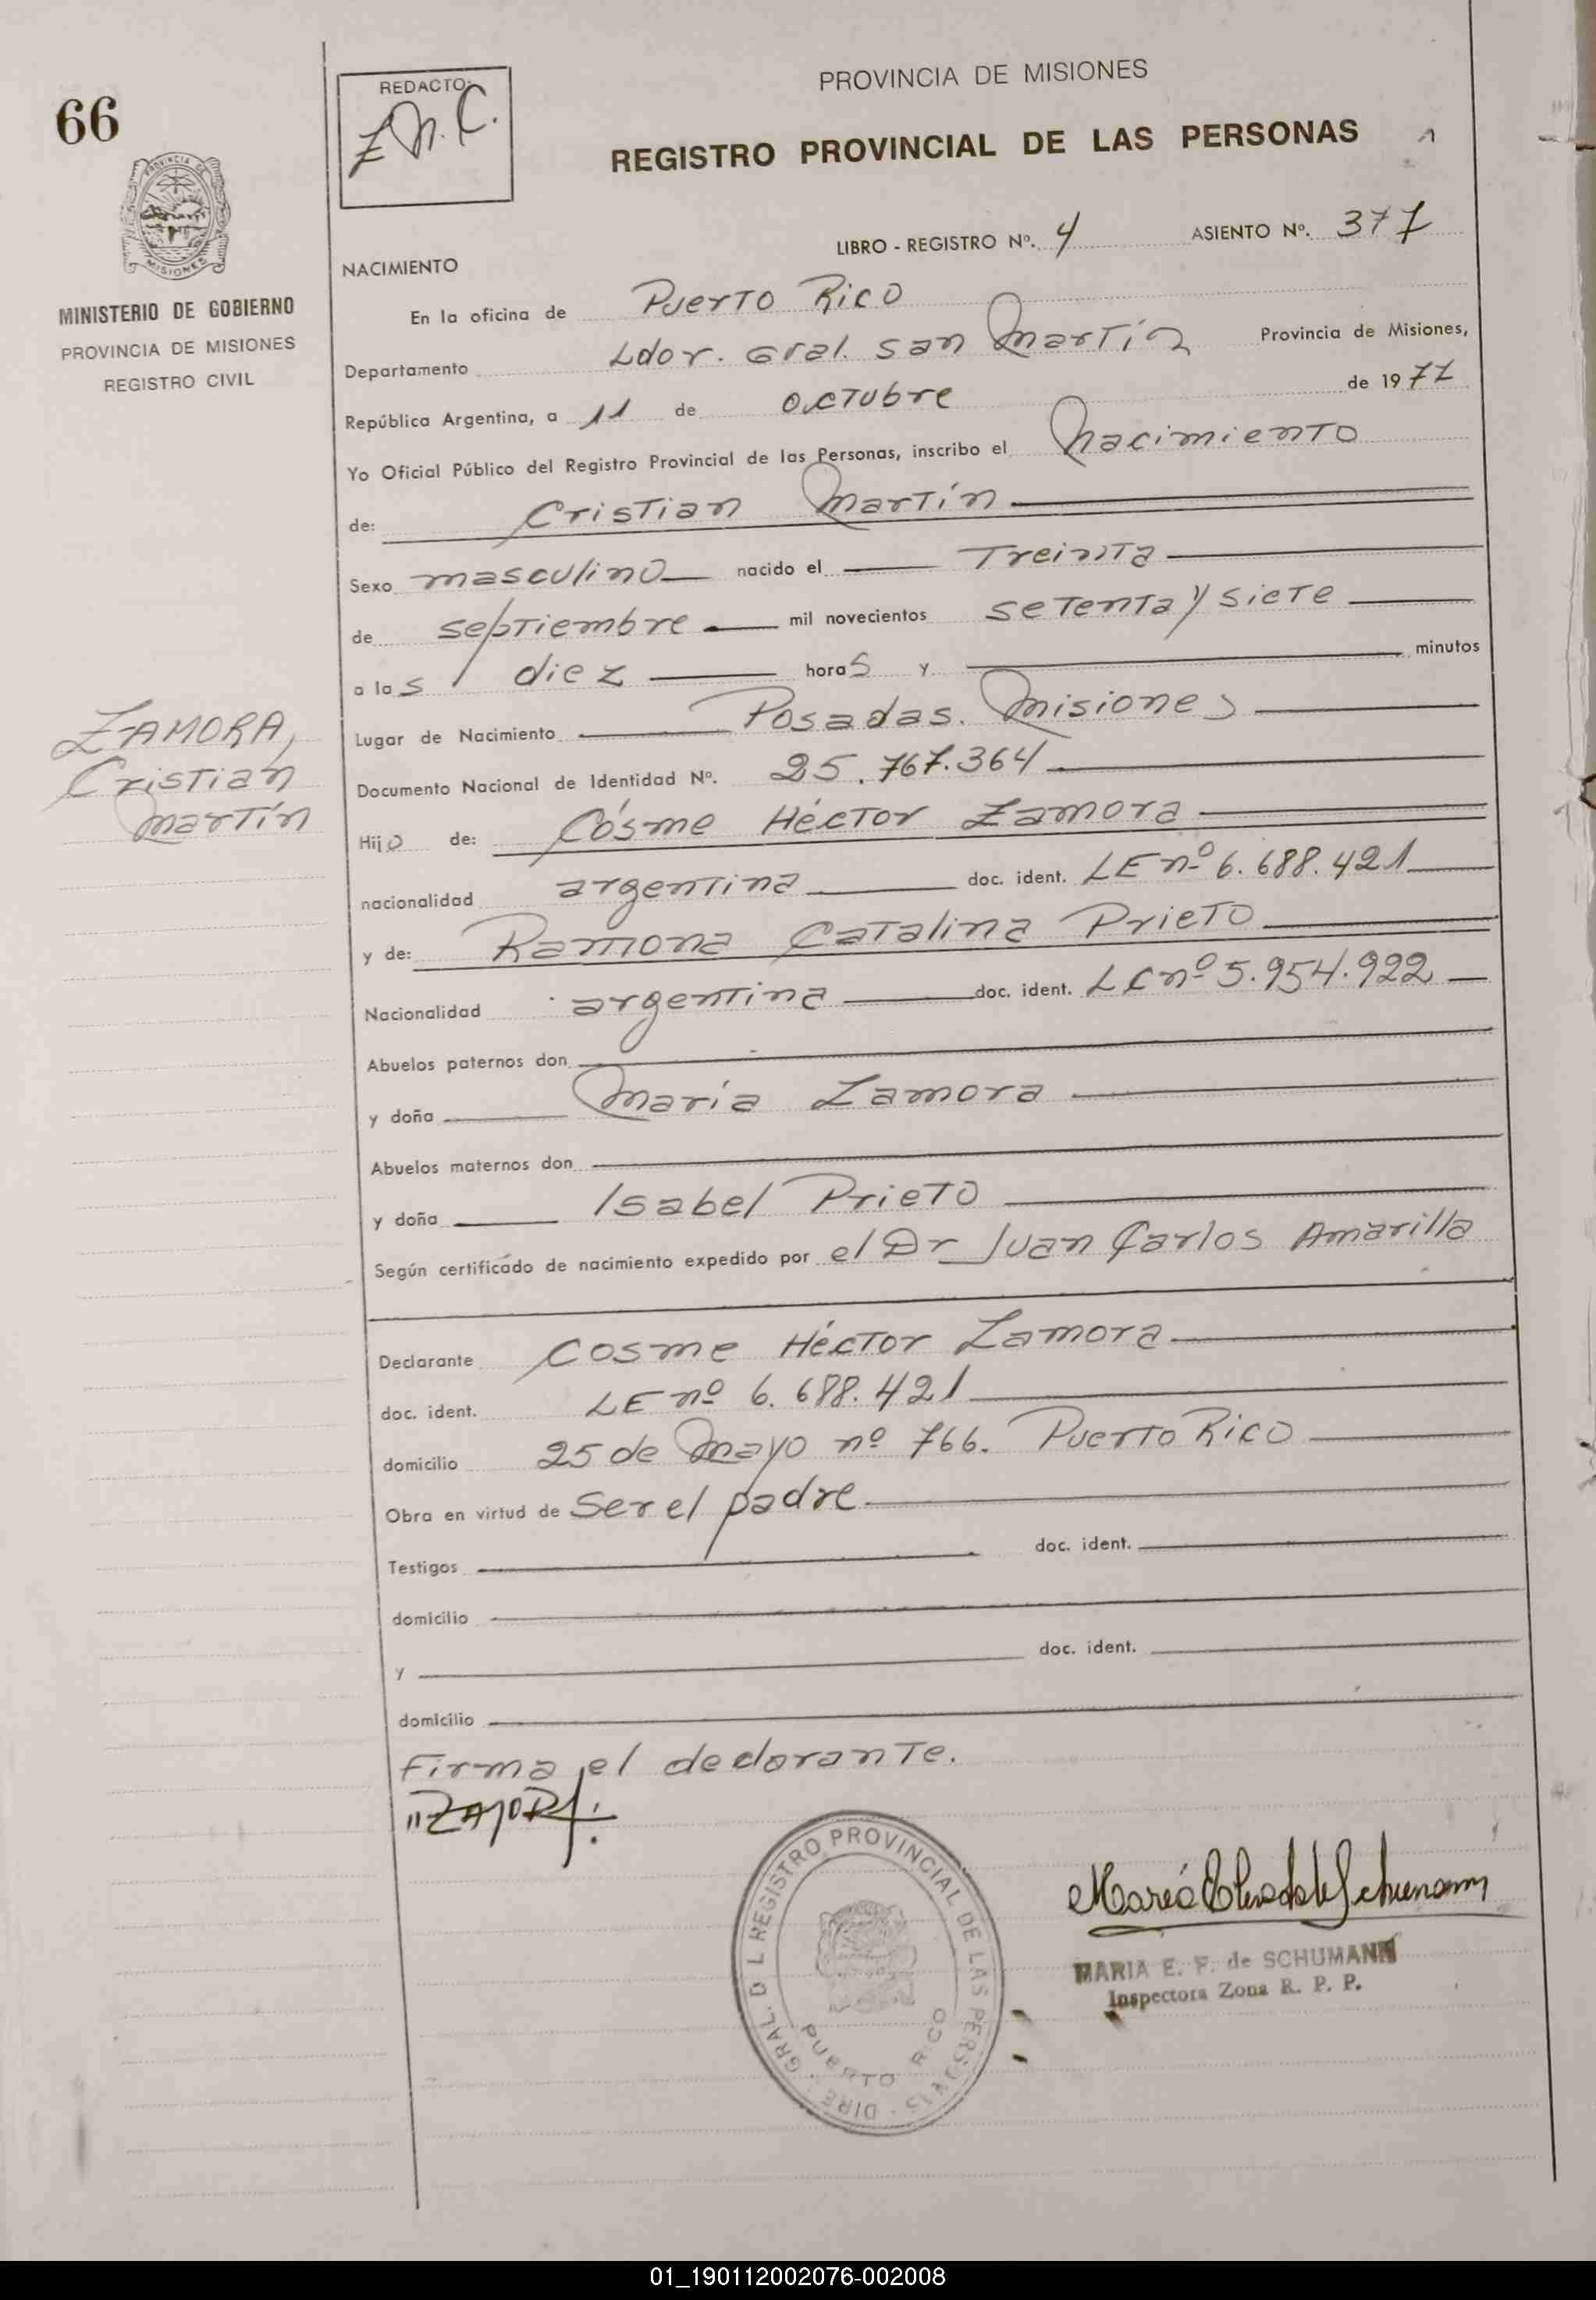 66
PROVINCIA DE MISIONES
MINISTERIO DE GOBIERNO
PROVINCIA DE MISIONES
REGISTRO CIVIL
REDACTO:
PROVINCIA DE MISIONES
REGISTRO PROVINCIAL DE LAS PERSONAS
LIBRO - REGISTRO Nº. 4 ASIENTO Nº. 377
NACIMIENTO
En la oficina de Puerto Rico
Departamento Ldor. Gral. San Martín Provincia de Misiones,
República Argentina, a 11 de octubre de 1977
Yo Oficial Público del Registro Provincial de las Personas, inscribo el nacimiento
de: Cristian Martín
Sexo masculino nacido el Treinta
de septiembre mil novecientos setenta y siete
a las diez horas y minutos
Lugar de Nacimiento Posadas. Misiones
ZAMORA,
Cristian
Martín
Documento Nacional de Identidad Nº. 25.767.364
Hijo de: Cósme Héctor Zamora
nacionalidad argentina doc. ident. LE nº 6.688.421
y de: Ramona Catalina Prieto
Nacionalidad argentina doc. ident. LC nº 5.954.922
Abuelos paternos don
y doña María Zamora
Abuelos maternos don
y doña Isabel Prieto
Según certificado de nacimiento expedido por el Dr Juan Carlos Amarilla
Declarante Cosme Héctor Zamora
doc. ident. LE nº 6.688.421
domicilio 25 de Mayo nº 766. Puerto Rico
Obra en virtud de Ser el padre
Testigos doc. ident.
domicilio
y doc. ident.
domicilio
Firma el declarante.
DIRE. GRAL. D L REGISTRO PROVINCIAL DE LAS PERSONAS
PUERTO RICO
MARIA E. F. de SCHUMANN
Inspectora Zona R. P. P.
01_190112002076-002008